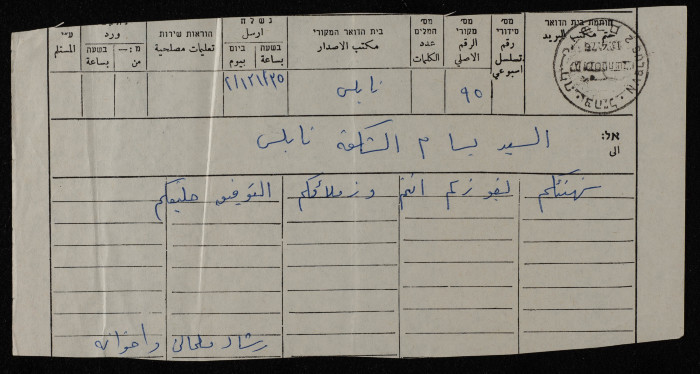 חותמת בית הדואר
ختم مكتب البريد
מס׳ סידורי
رقم تسلسل اسبوعي
מס׳ מקורי
الرقم الاصلي
מס׳ המלים
عدد الكلمات
בית הדואר המקורי
مكتب الاصدار
נשלח
ارسل
בשעה
بساعة
ביום
بيوم
הוראות שירות
تعليمات مصلحية
ورد
בשעה
بساعة
من
ע״י
المستلم
٩٥
نابلس
אל:
الى
السيد بسام الشكعة نابلس
نهنئكم لفوزكم انتم وزملائكم التوفيق حليفكم
رشاد ملحاني واخوانه